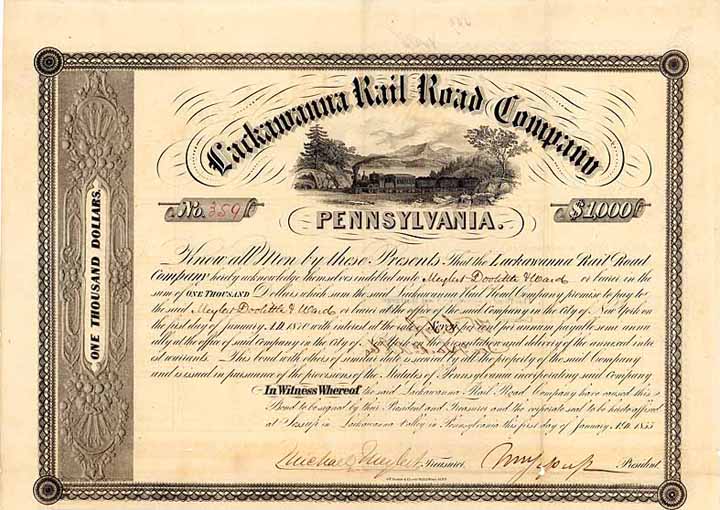 Lackawanna Rail Road Company
PENNSYLVANIA.
No. 359
$1,000
ONE THOUSAND DOLLARS.
Know all Men by these Presents That the Lackawanna Rail Road
Company hereby acknowledge themselves indebted unto Meylert Doolittle & Ward or bearer in the
sum of ONE THOUSAND Dollars which sum the said Lackawanna Rail Road Company promise to pay to
the said Meylert Doolittle & Ward or bearer at the office of the said Company in the City of New York on
the first day of January A.D. 1870 with interest at the rate of Seven per cent per annum payable semi annu
ally at the office of said Company in the City of New York on the presentation and delivery of the annexed inter
est warrants. This bond with others of similar date is secured by all the property of the said Company
and is issued in pursuance of the provisions of the Statutes of Pennsylvania incorporating said Company
In Witness Whereof the said Lackawanna Rail Road Company have caused this
Bond to be signed by their President and Treasurer and the corporate seal to be hereto affixed
at Jessup in Lackawanna Valley in Pennsylvania this first day of January A.D. 1855
Michael Meylert Treasurer
President